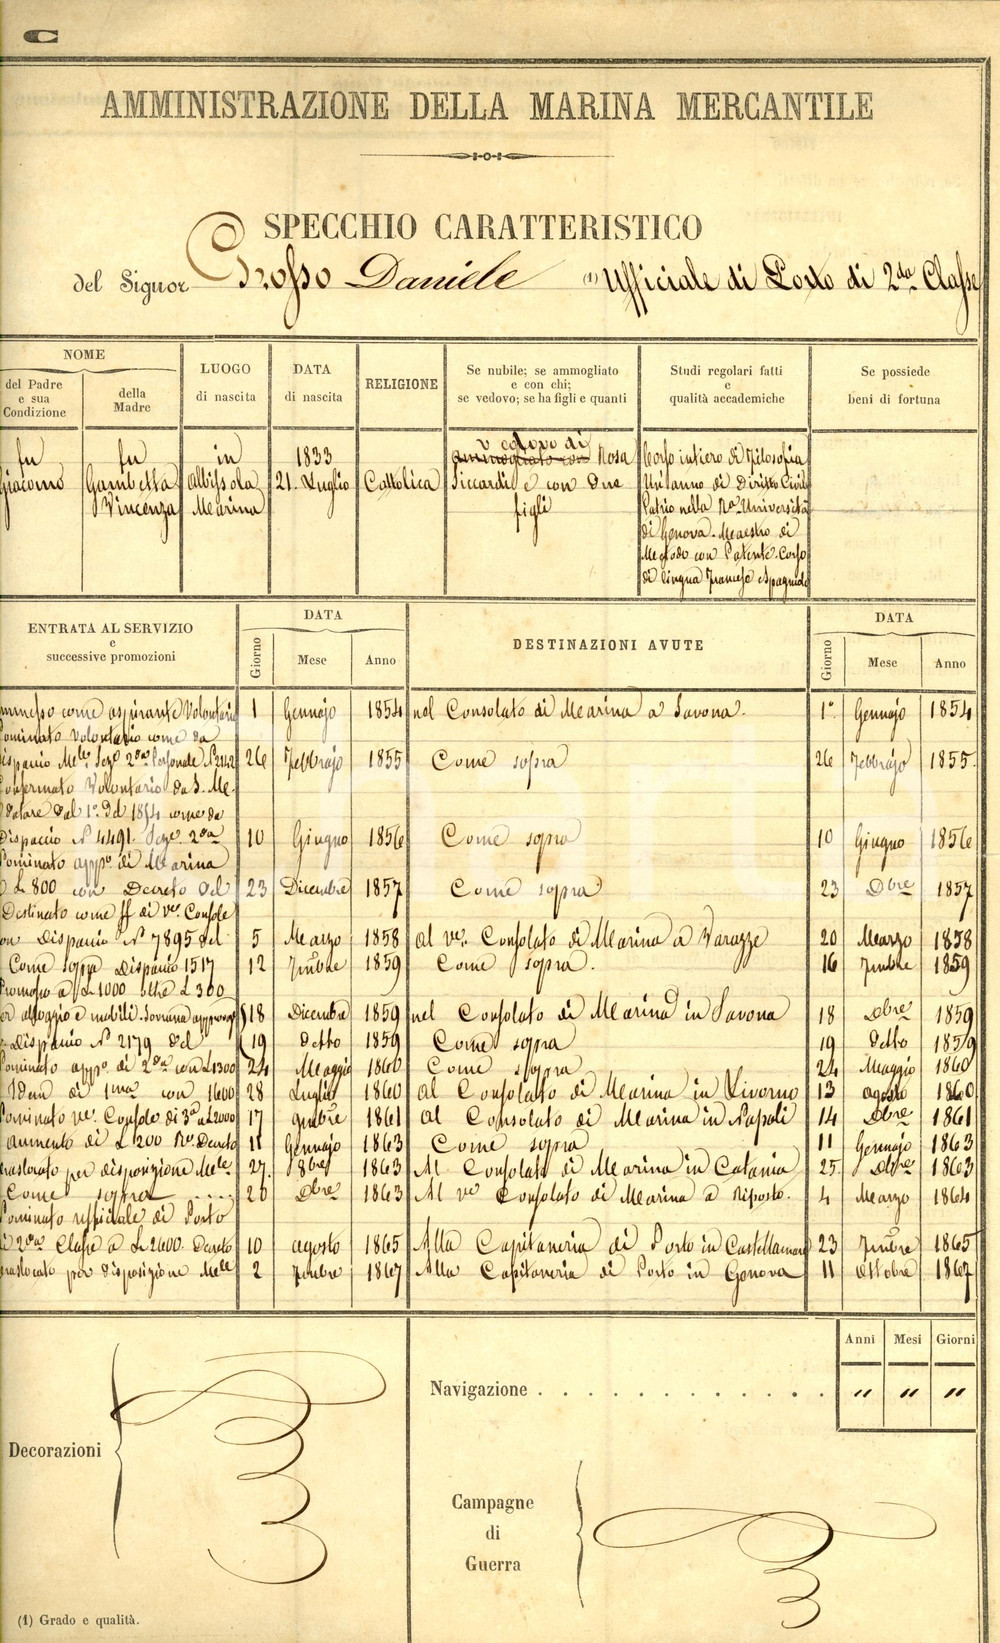 C
AMMINISTRAZIONE DELLA MARINA MERCANTILE
SPECCHIO CARATTERISTICO
del Signor Grosso Daniele (1) Ufficiale di Porto di 2da Classe
NOME
del Padre e sua Condizione
della Madre
LUOGO di nascita
DATA di nascita
RELIGIONE
Se nubile; se ammogliato e con chi; se vedovo; se ha figli e quanti
Studi regolari fatti e qualità accademiche
Se possiede beni di fortuna
fu Giacomo
fu Gambetta Vincenza
in Albissola Marina
1833 21. Luglio
Cattolica
vedovo di
ammogliato con Rosa
Siccardi e con due
figli
Corso intiero di Filosofia
Un anno di Diritto Civile
Patrio nella Ra. Università
di Genova. Maestro di
Metodo con Patente. Corso
di lingua francese e Spagnuola
ENTRATA AL SERVIZIO e successive promozioni
DATA
Giorno Mese Anno
DESTINAZIONI AVUTE
DATA
Giorno Mese Anno
mmesso come aspirante Volontario 1 Gennajo 1854 nel Consolato di Marina a Savona. 1° Gennajo 1854
ominato Volontario come da
ispaccio Mlle Seze 2da Personale N 2142 26 Febbrajo 1855 Come sopra 26 Febbrajo 1855
onfermato Volontario da S. M.
datare dal 1° del 1854 come da
Dispaccio N 4491. Seze. 2da 10 Giugno 1856 Come sopra 10 Giugno 1856
ominato appo. di Marina
L 800 con Decreto del 23 Dicembre 1857 Come sopra 23 Dbre 1857
Destinato come ff di ve. Console
on Dispaccio N 7895 del 5 Marzo 1858 Al ve. Consolato di Marina a Varazze 20 Marzo 1858
Come sopra Dispaccio 1517 12 7mbre 1859 Come sopra. 16 7mbre 1859
romosso a L 1000 oltre L 300
er alloggio e mobili. Sovrana approvaze 18 Dicembre 1859 nel Consolato di Marina in Savona 18 Dbre 1859
Dispaccio N° 2179 del 19 detto 1859 Come sopra 19 detto 1859
ominato appo. di 2da con L 1300 24 Maggio 1860 Come sopra 24 Maggio 1860
Idem di 1ma con 1600 28 Luglio 1860 Al Consolato di Marina in Livorno 13 agosto 1860
ominato ve. Console di 3a L 2000 17 9mbre 1861 Al Consolato di Marina in Napoli 14 Dbre 1861
aumento di L 200 Ro. Decreto 11 Gennajo 1863 Come sopra 11 Gennajo 1863
raslocato per disposizione Mle 27. 8bre 1863 Al Consolato di Marina in Catania 25. Dbre 1863
Come sopra 20 Dbre 1863 Al ve Consolato di Marina a Riposto. 4 Marzo 1864
ominato ufficiale di Porto
i 2da Classe a L 2600. Decreto 10 agosto 1865 Alla Capitaneria di Porto in Castellamare 23 7mbre 1865
raslocato per disposizione Mle 2 7mbre 1867 Alla Capitaneria di Porto in Genova 11 Ottobre 1867
Anni Mesi Giorni
Navigazione . . . . . . . . . . . . . . " " "
Decorazioni
Campagne
di
Guerra
(1) Grado e qualità.